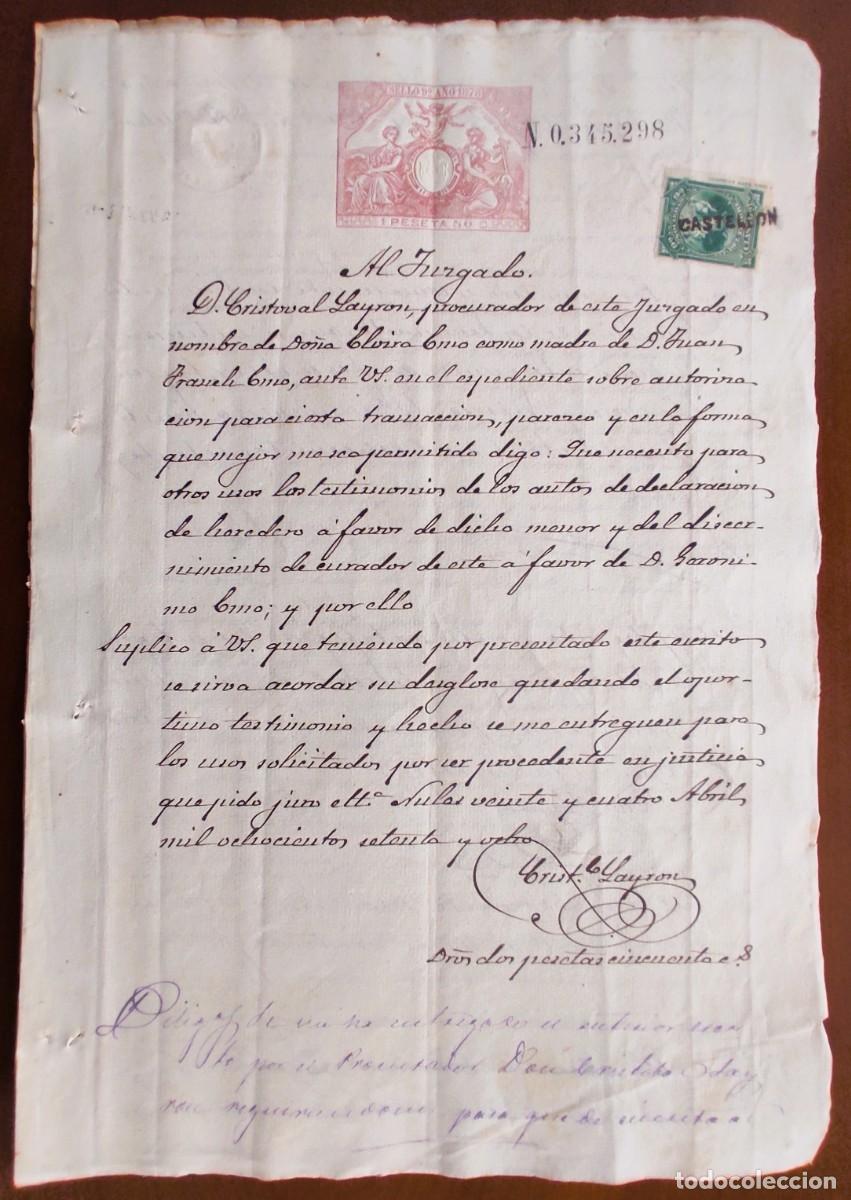 SELLO 9º AÑO 1878
1 PESETA 50 C.
N. 0.345.298
CASTELLON
Al Jurgado.
D. Cristoval Layron, procurador de este Jurgado en
nombre de Doña Elvira Emo como madre de D. Juan
Franch Emo, ante VS. en el espediente sobre autoriza
cion para cierta transaccion, paresco y en la forma
que mejor me sea permitido digo: Que necesito para
otros usos los testimonios de los autos de declaracion
de heredero á favor de dicho menor y del discer-
nimiento de curador de este á favor de D. Geroni-
mo Emo; y por ello
Suplico á VS. que teniendo por presentado este escrito
se sirva acordar su desglose quedando el opor-
tuno testimonio y hecho se me entreguen para
los usos solicitados por ser procedente en justicia
que pido juro ettª Nules veinte y cuatro Abril
mil ochocientos setenta y ocho
Crist.l Layron
Dros dos pesetas cincuenta c.s
de
to por el Procurador Don Cristobal Lay
ron para que de cuenta
todocoleccion